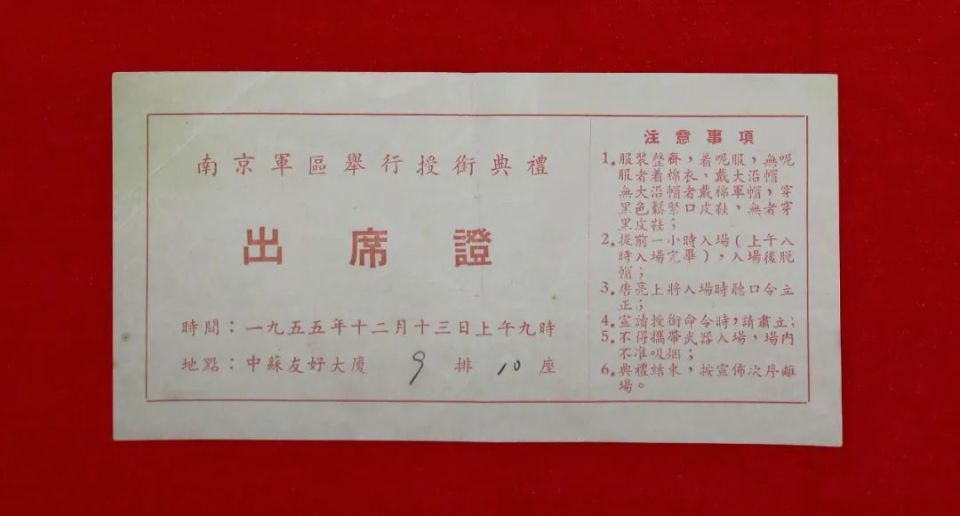 南京軍區舉行授銜典禮
出席證
時間：一九五五年十二月十三日上午九時
地點：中蘇友好大廈 9 排 10 座
注意事項
1. 服裝整齊，着呢服，無呢
服者着棉衣，戴大沿帽
無大沿帽者戴棉軍帽，穿
黑色鬆緊口皮鞋，無者穿
黑皮鞋；
2. 提前一小時入場（上午八
時入場完畢），入場後脫
帽；
3. 唐亮上將入場時聽口令立
正；
4. 宣讀授銜命令時，請肅立；
5. 不得攜帶武器入場，場内
不准吸烟；
6. 典禮結束，按宣佈次序離
場。